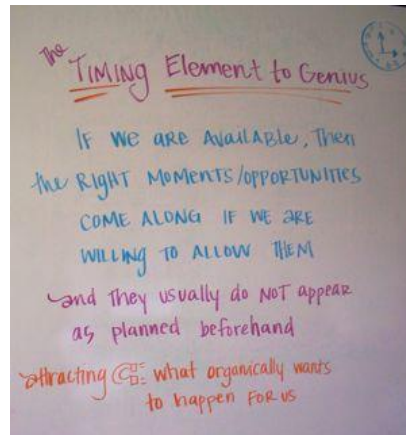 The TIMING Element to Genius
IF WE ARE AVAILABLE, THEN
the RIGHT MOMENTS/OPPORTUNITIES
COME ALONG IF WE ARE
WILLING TO ALLOW THEM
and they usually do NOT appear
as planned beforehand
attracting what organically wants
to happen FOR US